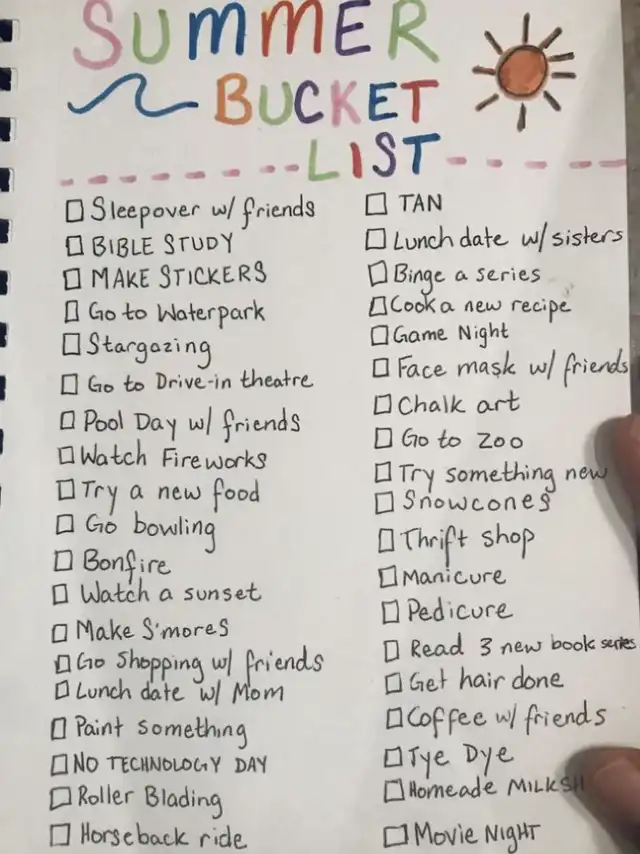 SUMMER
BUCKET
LIST
Sleepover w/ friends
BIBLE STUDY
MAKE STICKERS
Go to Waterpark
Stargazing
Go to Drive-in theatre
Pool Day w/ friends
Watch Fireworks
Try a new food
Go bowling
Bonfire
Watch a sunset
Make S'mores
Go Shopping w/ friends
Lunch date w/ Mom
Paint something
NO TECHNOLOGY DAY
Roller Blading
Horseback ride
TAN
Lunch date w/ sisters
Binge a series
Cook a new recipe
Game Night
Face mask w/ friends
Chalk art
Go to Zoo
Try something new
Snowcones
Thrift shop
Manicure
Pedicure
Read 3 new book series
Get hair done
Coffee w/ friends
Tye Dye
Homeade MILKSH
Movie NIGHT